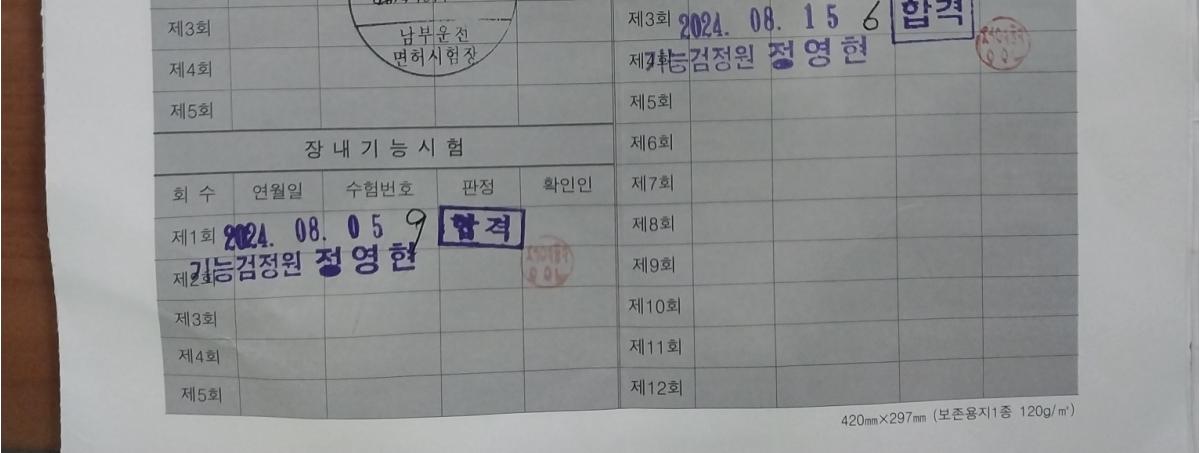 제3회
남부운전
면허시험장
제4회
제5회
장내기능시험
회 수 연월일 수험번호 판정 확인인
제1회 2024. 08. 05 9 합격
제2회 기능검정원 정영현
제3회
제4회
제5회
제3회 2024. 08. 15 6 합격
제4회 기능검정원 정영현
제5회
제6회
제7회
제8회
제9회
제10회
제11회
제12회
420mm×297mm (보존용지1종 120g/㎡)